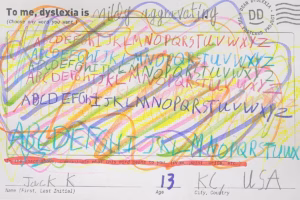 To me, dyslexia is mildly aggravating
DD
ABCDEFGHIJKLMNOPQRSTUVWXYZ
ABCDEFGHIJKLMNOPQRSTUVWXYZ
ABCDEFGHIJKLMNOPQRSTUVWXYZ
ABCDEFGHIJKLMNOPQRSTUVWXYZ
ABCDEFGHIJKLMNOPQRSTUVWXYZ
ABCDEFGHIJKLMNOPQRSTUVWX
Jack K 13 KC, USA
Name (First, Last Initial) Age City, Country